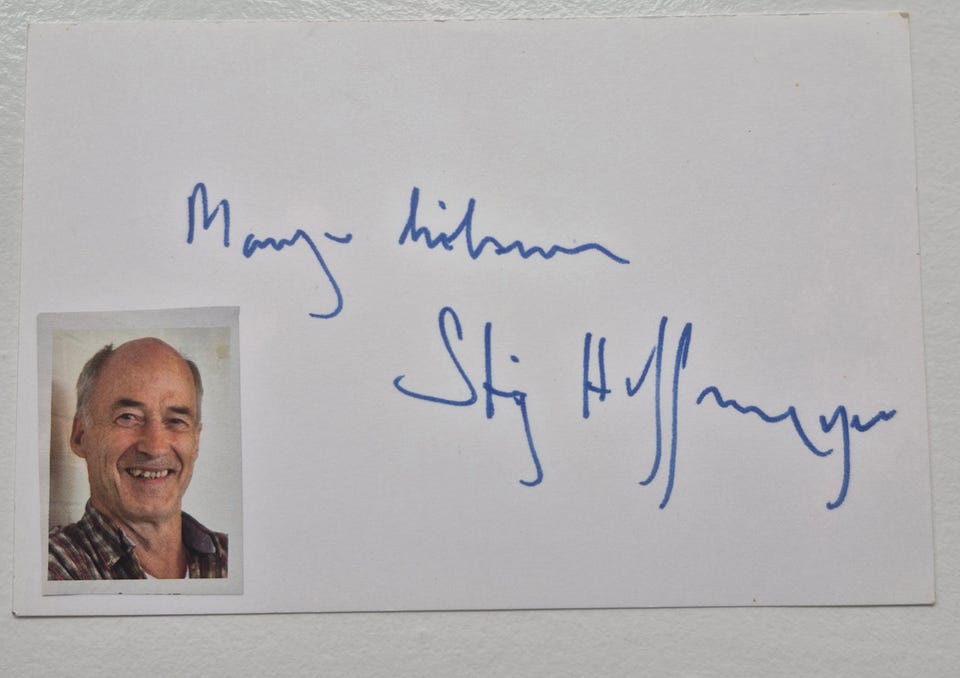 Mange hilsner
Stig Hoffmeyer